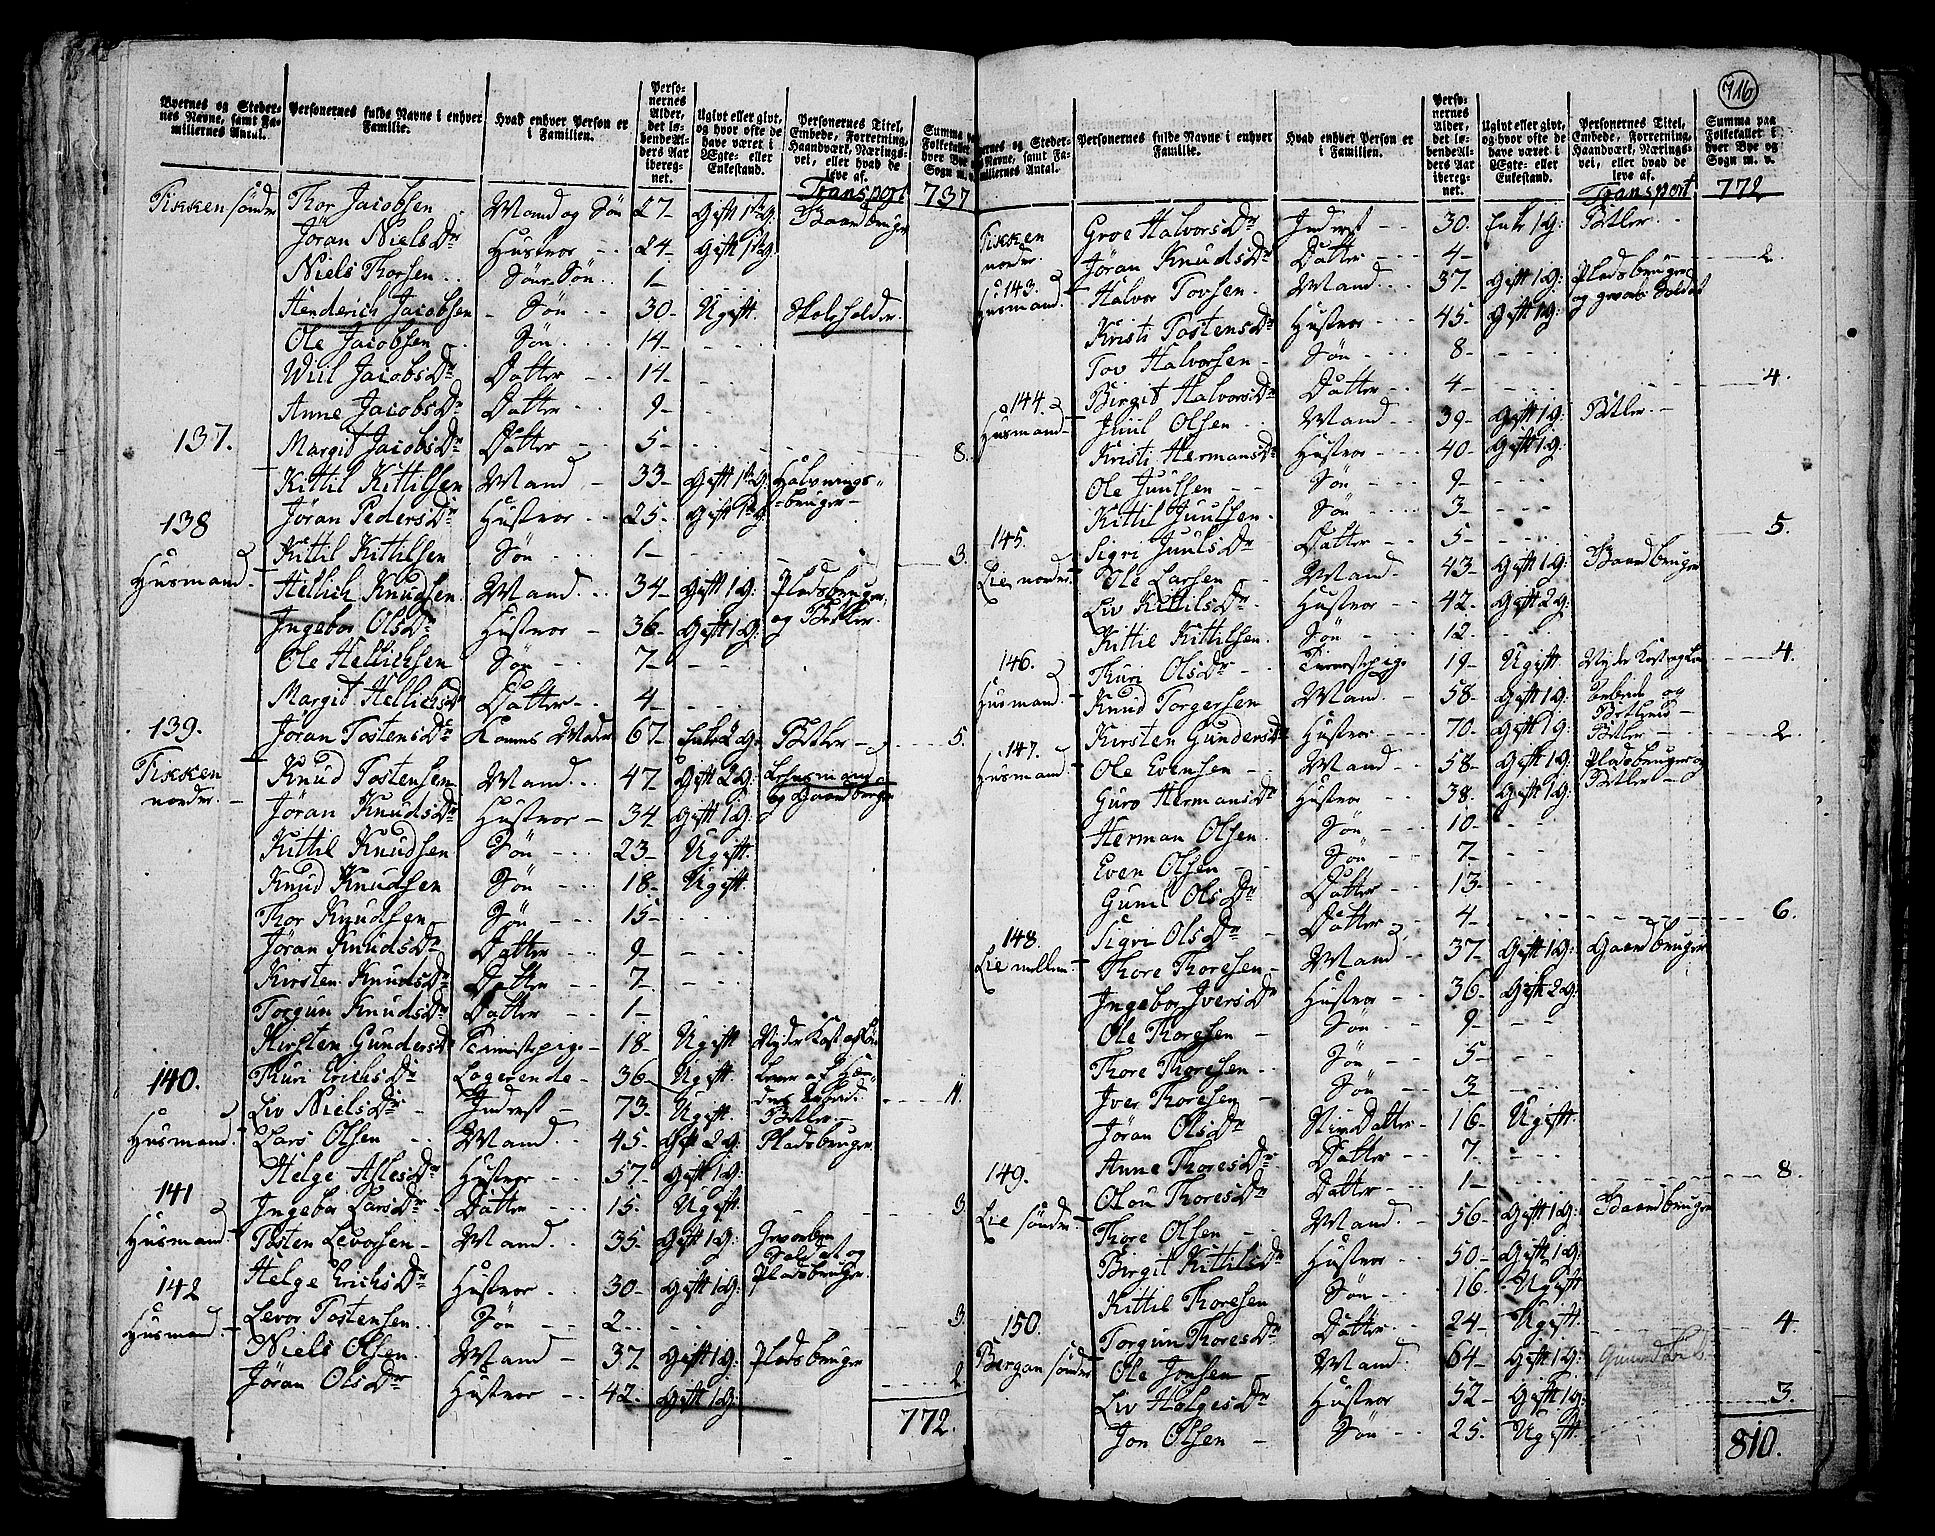 Byernes og Steder-
nes Navne, samt Fa-
miliernes Antal.
Personernes fulde Navne i enhver
Familie.
Hvad enhver Person er
i Familien.
Perso-
nernes
Alder,
det lø-
bende Al-
ders Aar
iberegnet.
Ugivt eller givt,
og hvor ofte de
have været i
Ægte- eller
Enkestand.
Personernes Titel,
Embede, Forretning,
Haandværk, Nærings-
vei, eller hvad de
leve af.
Summa paa
Folketallet i
hver Bye og
Sogn m. v.
Transport 737
Tikken söndr Thor Jacobsen Mand og Sön 27 Gift 1te G. Gaardbruger
Jöran NielsDr Hustroe 24 Gift 1te G.
Niels Thorsen Söns Sön 1
Henderich Jacobsen Sön 30 Ugift Skoleholder.
Ole Jacobsen Sön 14
Wiil JacobsDr Datter 14
Anne JacobsDr Datter 9
Margit JacobsDr Datter 5 8.
137. Kittil Kittilsen Mand 33 Gift 1te G. Halvnings-
Jöran PedersDr Hustroe 25 Gift 1te G. bruger
Kittil Kittilsen Sön 1 3.
138 Husmand Hellich Knudsen Mand 34 Gift 1 G: Pladsbruger
Ingebor OlsDr Hustroe 36 Gift 1 G: og Betler.
Ole Hellichsen Sön 7
Margit HellichsDr Datter 4
Jöran TostensDr Konens Moder 67 Enke 2 G. Betler 5.
139. Tikken nordr. Knud Tostensen Mand 47 Gift 2 G. Lensmand
Jöran KnudsDr Hustroe 34 Gift 1 G. og Gaardbruger
Kittil Knudsen Sön 23 Ugift.
Knud Knudsen Sön 18 Ugift.
Thor Knudsen Sön 15
Jöran KnudsDr Datter 9
Kirsten KnudsDr Datter 7
Torgun KnudsDr Datter 1
Kirsten GundersDr Tienistepige 18 Ugift Nyder Kost og Lön
Thuri ErichsDr Logerende 36 Ugift. Lever af Hæn-
Liv NielsDr Inderst 73 Ugift. Betler 11.
140. Husmand. Lars Olsen Mand 45 Gift 2 G. Pladsbruger.
Helge AslesDr Hustroe 57 Gift 1 G:
Ingebor LarsDr Datter 15. Ugift. 3.
141 Husmand Tosten Levorsen Mand 35 Gift 1 G: Gevorben
Soldat og
Helge ErichsDr Hustroe 30 Gift 1 G: Pladsbruger.
Levor Tostensen Sön 2 3.
142 Husmand Niels Olsen Mand 37 Gift 1 G: Pladsbruger
Jöran OlsDr Hustroe 42. Gift 1 G: 2
772.
716
Byernes og Steder-
nes Navne, samt Fa-
miliernes Antal.
Personernes fulde Navne i enhver
Familie.
Hvad enhver Person er
i Familien.
Perso-
nernes
Alder,
det lø-
bende Al-
ders Aar
iberegnet.
Ugivt eller givt,
og hvor ofte de
have været i
Ægte- eller
Enkestand.
Personernes Titel,
Embede, Forretning,
Haandværk, Nærings-
vei, eller hvad de
leve af.
Summa paa
Folketallet i
hver Bye og
Sogn m. v.
Transport 772
Tikken nordr. Groe HalvorsDr Inderst 30. Enke 1 G: Betler
Jöran KnudsDr Datter 4 2
143. Husmand Halvor Tovsen Mand 37 Gift 1 G: Pladsbruger
og gevorb: Soldat
Kristi TostensDr Hustroe 45 Gift 1 G:
Tov Halvorsen Sön 8
Birgit HalvorsDr Datter 4 4.
144. Husmand Juul Olsen Mand 39 Gift 1 G: Betler
Kristi HermansDr Hustroe 40 Gift 1 G:
Ole Juulsen Sön 9
Kittil Juulsen Sön 3
Sigri JuulsDr Datter 5 5.
145. Lie nordr. Ole Larsen Mand 43 Gift 1 G: Gaardbruger
Liv KittilsDr Hustroe 42 Gift 2 G:
Kittil Kittilsen Sön 12
Thuri OlsDr Tienestepige 19 Ugift. Nyder Kost og Lön 4.
146. Husmand Knud Torgersen Mand 58 Gift 1 G: Arbeide og
Betlerie
Kirsten GundersDr Hustroe 70 Gift 1 G: Betler 2.
147. Husmand Ole Evensen Mand 58 Gift 1 G: Pladsbruger og
Guro HermansDr Hustroe 38 Gift 1 G: Betler
Herman Olsen Sön 10
Even Olsen Sön 7
Gunil OlsDr Datter 13
Sigri OlsDr Datter 4 6.
148. Lie mellem Thore Thoresen Mand 37 Gift 1 G: Gaardbruger
Ingebor IversDr Hustroe 36 Gift 2 G:
Ole Thoresen Sön 9
Thore Thoresen Sön 5
Iver Thoresen Sön 3
Jöran OlsDr StivDatter 16 Ugift.
Anne ThoresDr Datter 7
Olou ThoresDr Datter 1 8.
149. Lie söndr Thore Olsen Mand 56 Gift 1 G: Gaardbruger
Birgit KittilsDr Hustroe 50 Gift 1 G:
Kittil Thoresen Sön 16. Ugift
Torgun ThoresDr Datter 24 Ugift. 4.
150. Bergan söndr Ole Jonsen Mand 64 Gift 1 G:
Liv HelgesDr Hustroe 52 Gift 1 G: 3.
Jon Olsen Sön 25. Ugift.
810.